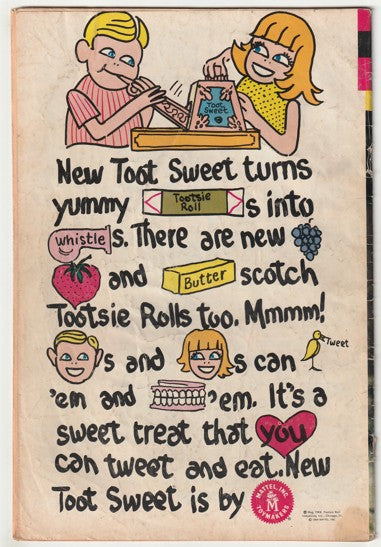 Toot
Sweet
New Toot Sweet turns
yummy Tootsie Roll s into
whistle s. There are new
and Butter scotch
Tootsie Rolls too. Mmmm!
s and s can Tweet
'em and 'em. It's a
sweet treat that you
can tweet and eat. New
Toot Sweet is by MATTEL, INC. TOYMAKERS M